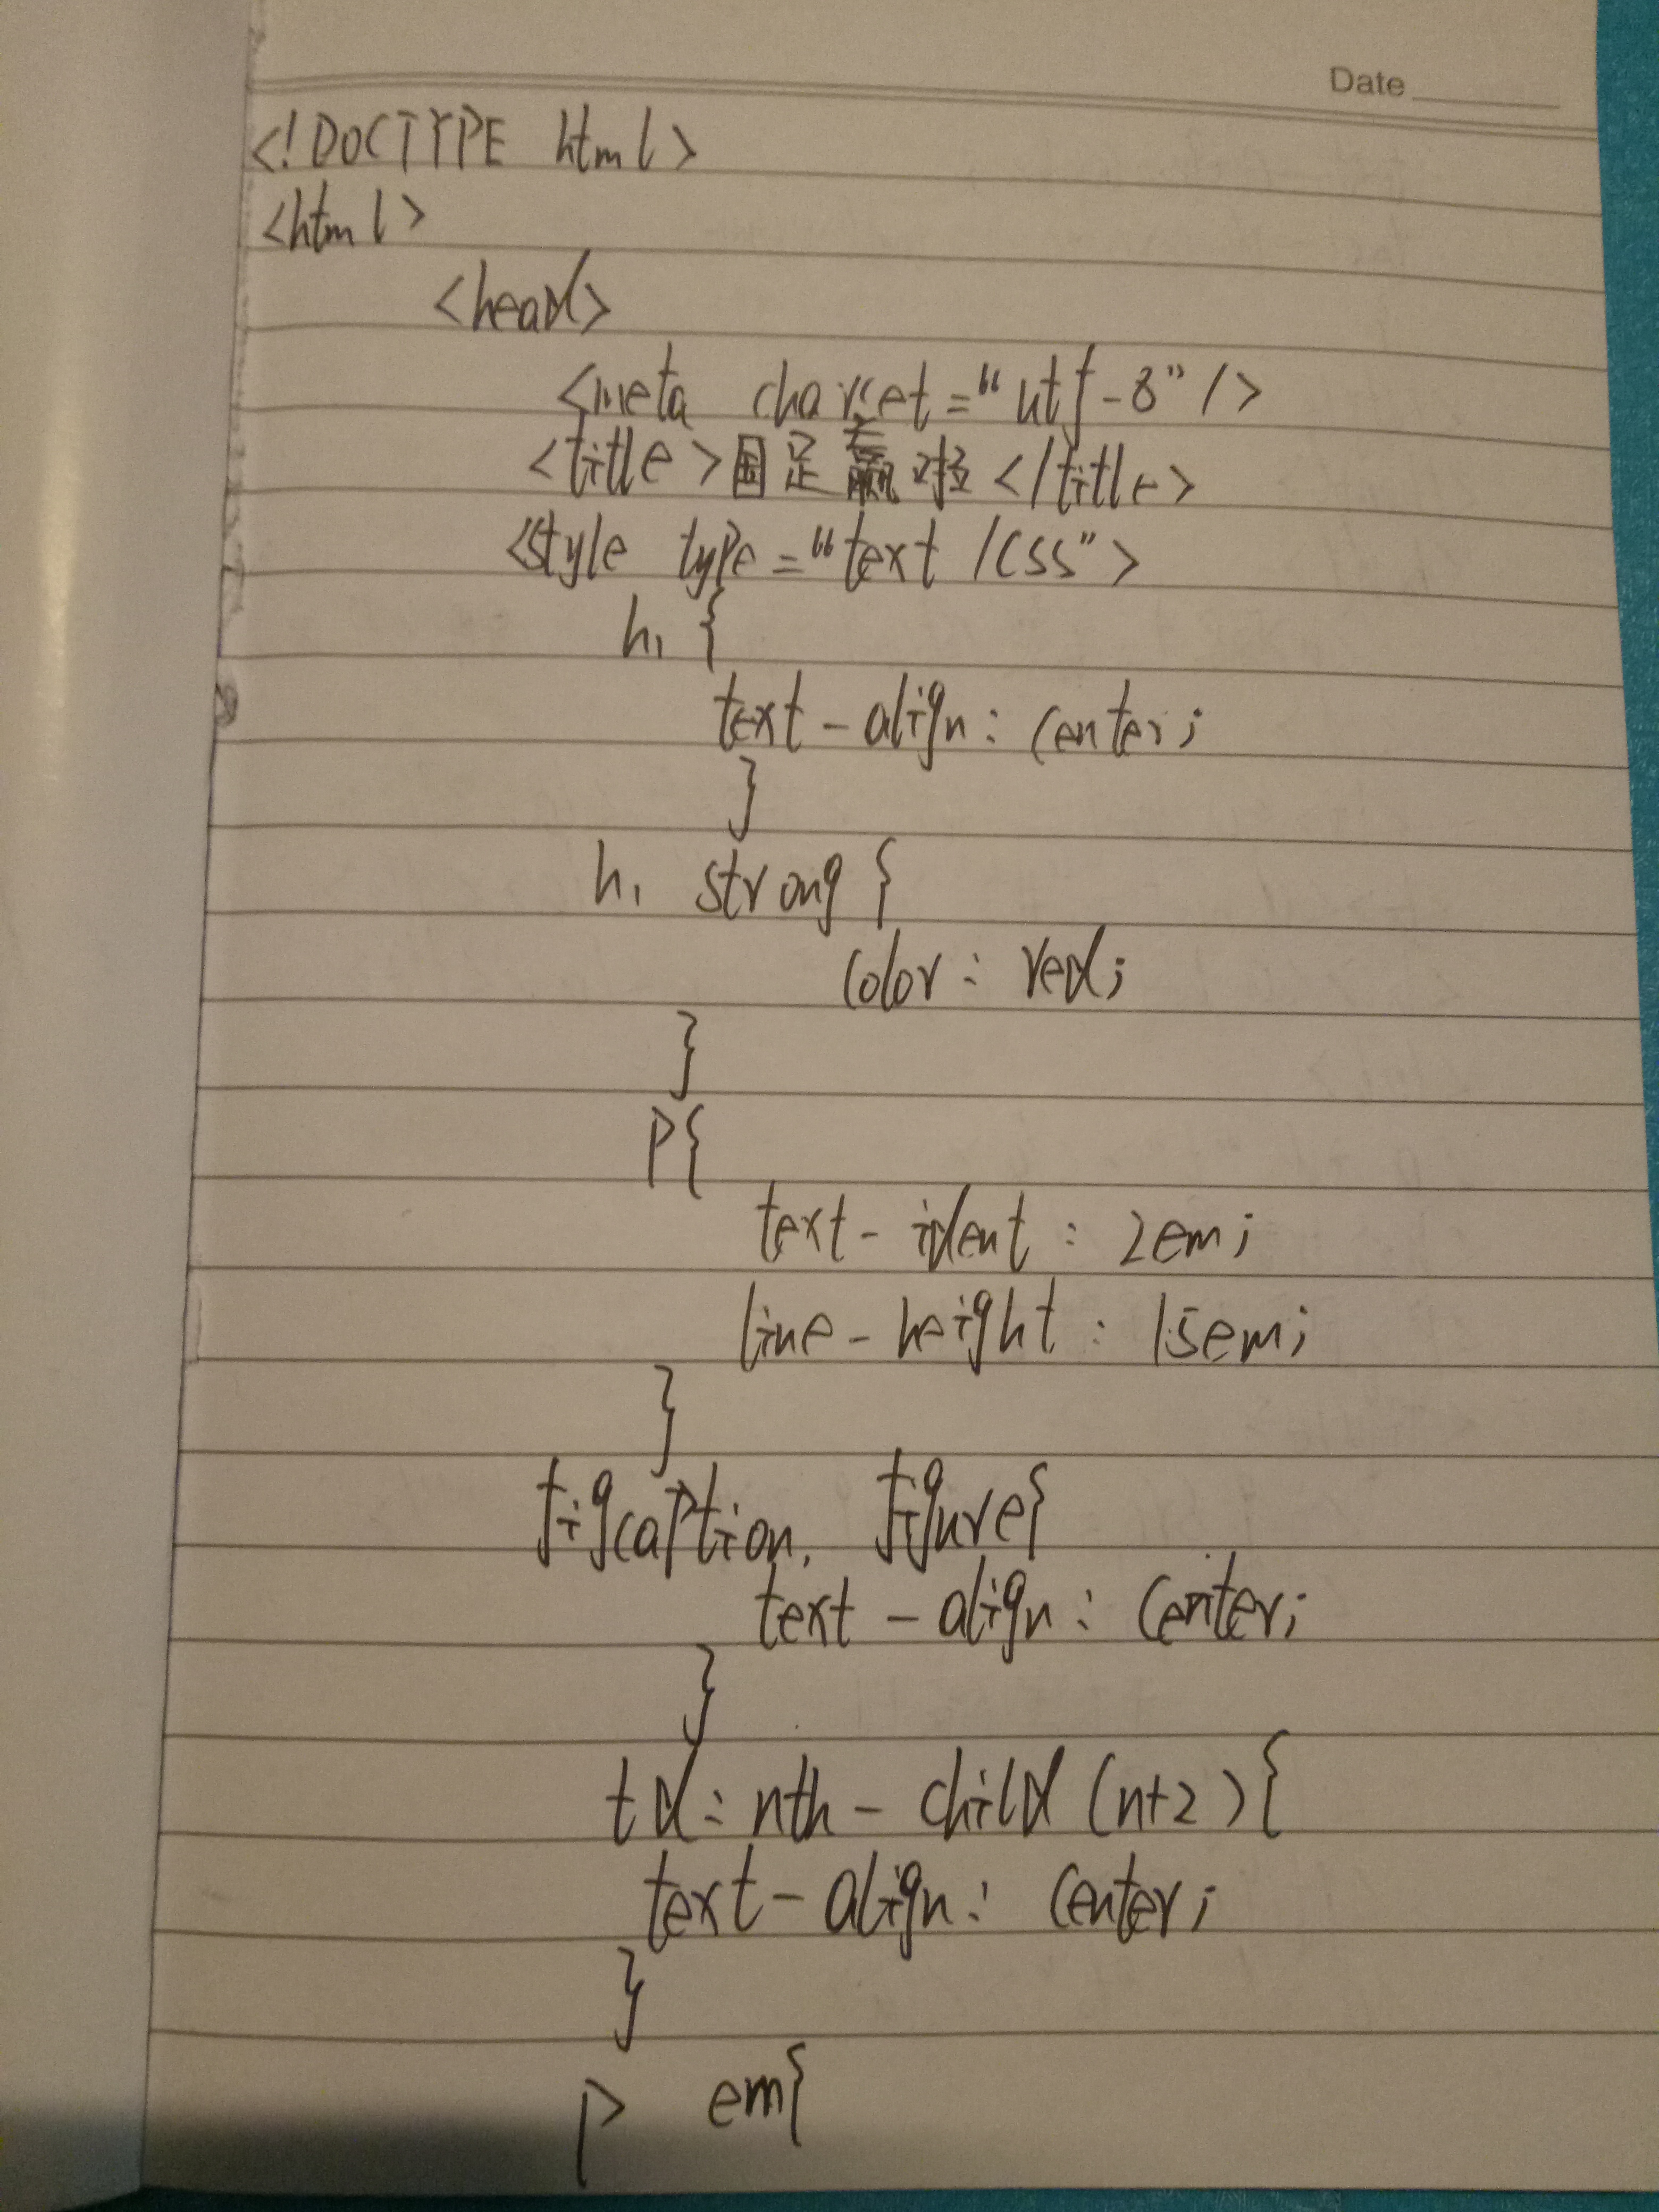 Date
<!DOCTYPE html>
<html>
<head>
<meta charset="utf-8"/>
<title>国足赢球</title>
<style type="text/css">
h1 {
text-align: center;
}
h1 strong {
color: red;
}
p{
text-ident: 2em;
line-height: 1.5em;
}
figcaption, figure{
text-align: center;
}
td:nth-child(n+2){
text-align: center;
}
p em{